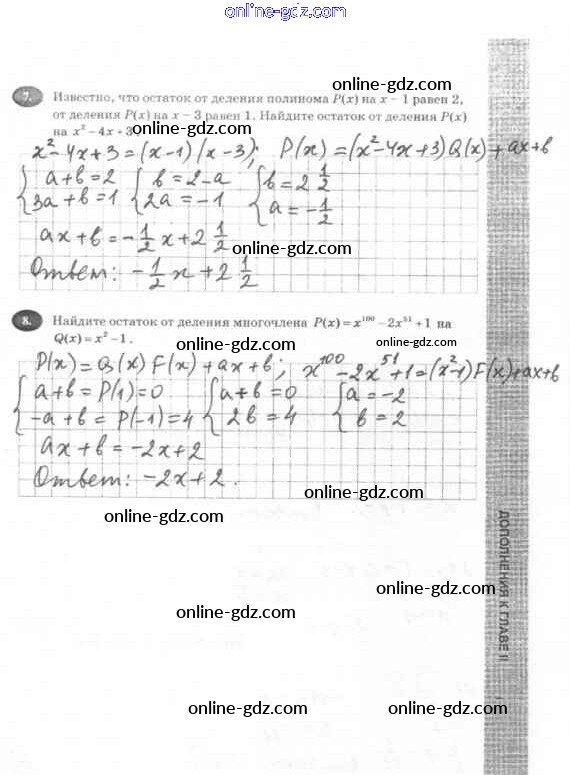 online-gdz.com
online-gdz.com
7. Известно, что остаток от деления полинома P(x) на x − 1 равен 2,
от деления P(x) на x − 3 равен 1. Найдите остаток от деления P(x)
на x² − 4x + 3.
online-gdz.com
x²−4x+3=(x−1)(x−3); P(x)=(x²−4x+3)Q(x)+ax+b
{a+b=2 {b=2−a {b=2 1/2
3a+b=1 2a=−1 a=−1/2
ax+b=−1/2x+2 1/2
online-gdz.com
Ответ: −1/2x+2 1/2
8. Найдите остаток от деления многочлена P(x)=x¹⁰⁰−2x⁵¹+1 на
Q(x)=x²−1.
online-gdz.com
P(x)=Q(x)F(x)+ax+b; x¹⁰⁰−2x⁵¹+1=(x²−1)F(x)+ax+b
{a+b=P(1)=0 {a+b=0 {a=−2
−a+b=P(−1)=4 2b=4 b=2
ax+b=−2x+2
Ответ: −2x+2.
online-gdz.com
online-gdz.com
ДОПОЛНЕНИЯ К ГЛАВЕ II
online-gdz.com
online-gdz.com
online-gdz.com
online-gdz.com